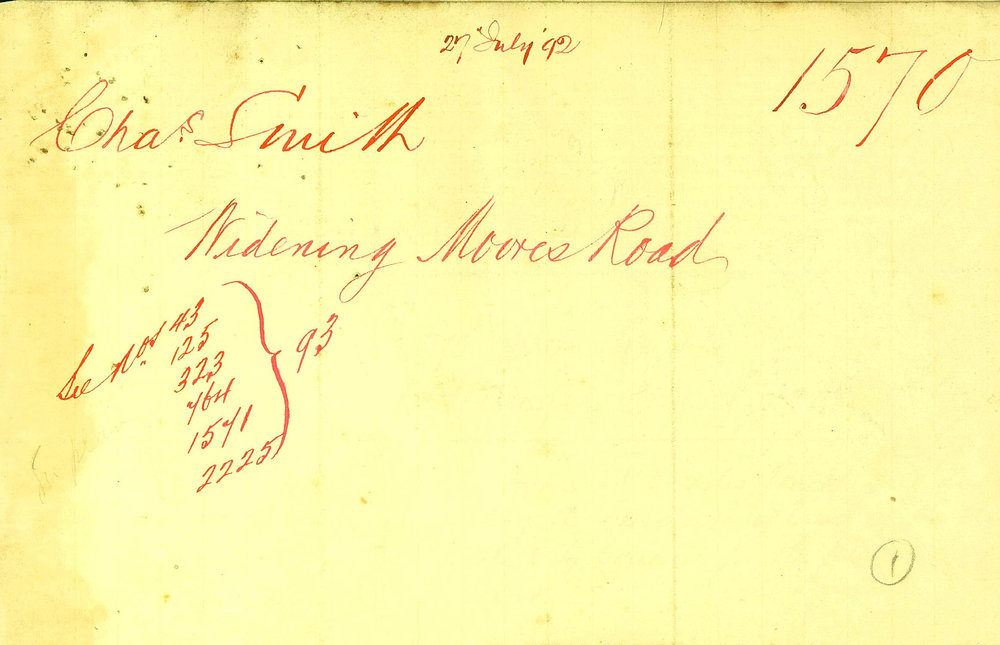 27 July '92
1570
Chas. Smith
Widening Moores Road
See Nos 43
125
323
764
1571
2225
93
1